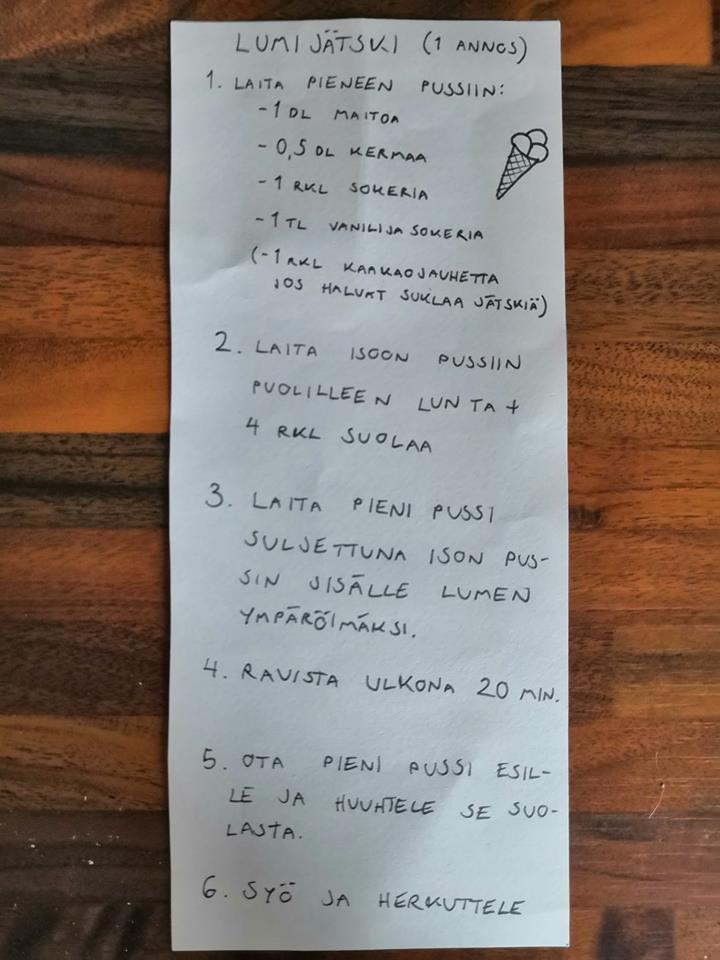 LUMIJÄTSKI (1 ANNOS)
1. LAITA PIENEEN PUSSIIN:
-1 DL MAITOA
- 0,5 DL KERMAA
- 1 RKL SOKERIA
- 1 TL VANILIJASOKERIA
(-1 RKL KAAKAOJAUHETTA
JOS HALUAT SUKLAA JÄTSKIÄ)
2. LAITA ISOON PUSSIIN
PUOLILLEEN LUNTA +
4 RKL SUOLAA
3. LAITA PIENI PUSSI
SULJETTUNA ISON PUS-
SIN SISÄLLE LUMEN
YMPÄRÖIMÄKSI.
4. RAVISTA ULKONA 20 MIN.
5. OTA PIENI PUSSI ESIL-
LE JA HUUHTELE SE SUO-
LASTA.
6. SYÖ JA HERKUTTELE